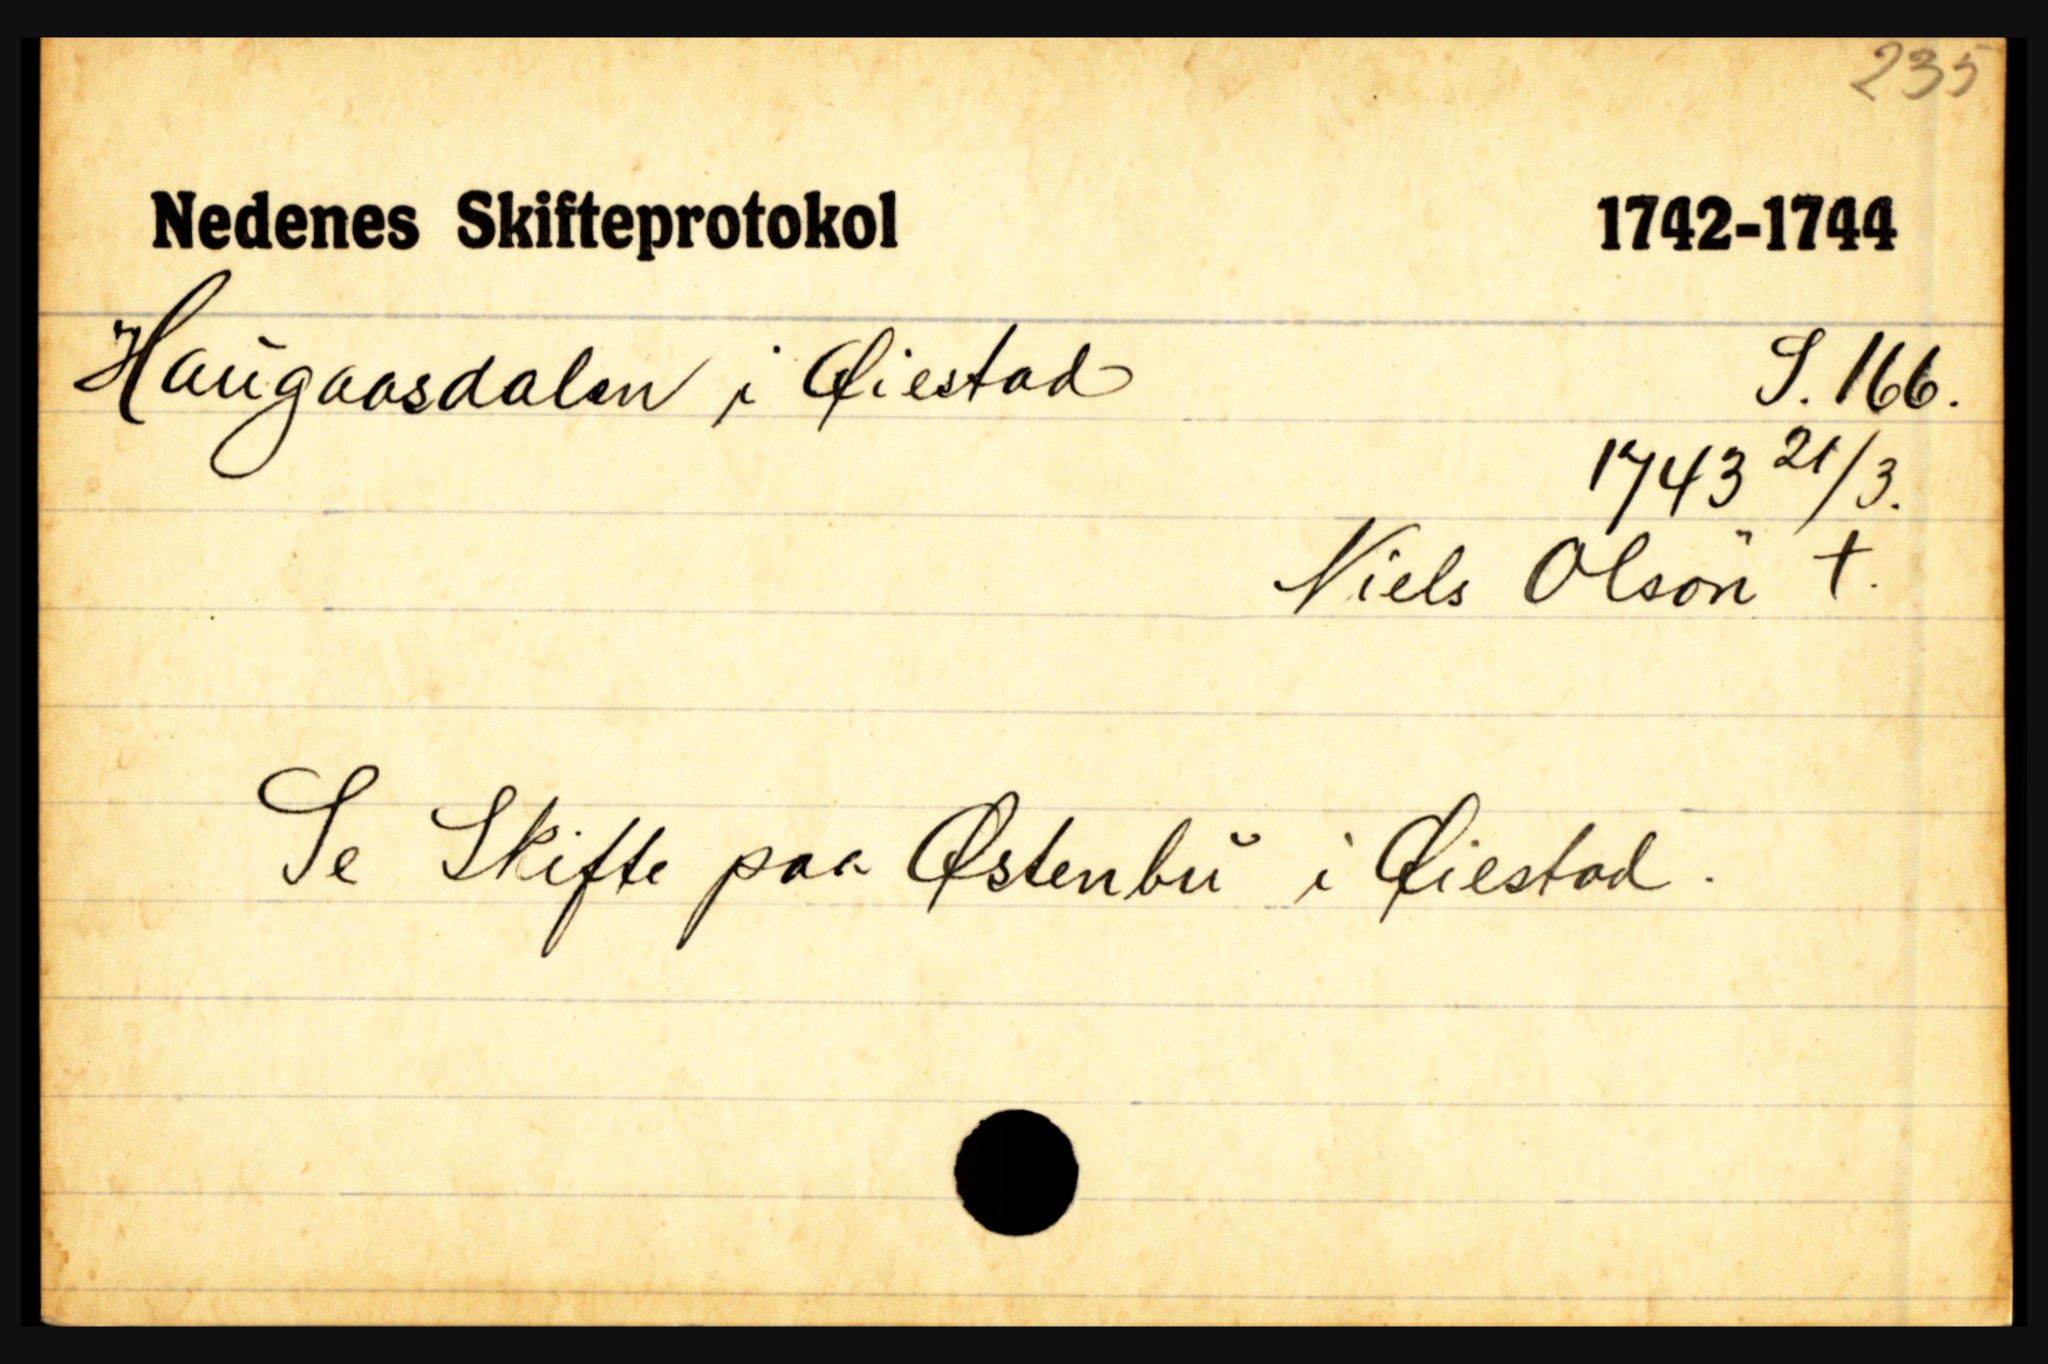 235
Nedenes Skifteprotokol 1742-1744
Haugaasdalen i Øiestad S. 166.
1743 21/3.
Niels Olsön †.
Se Skifte paa Østenbu i Øiestad.